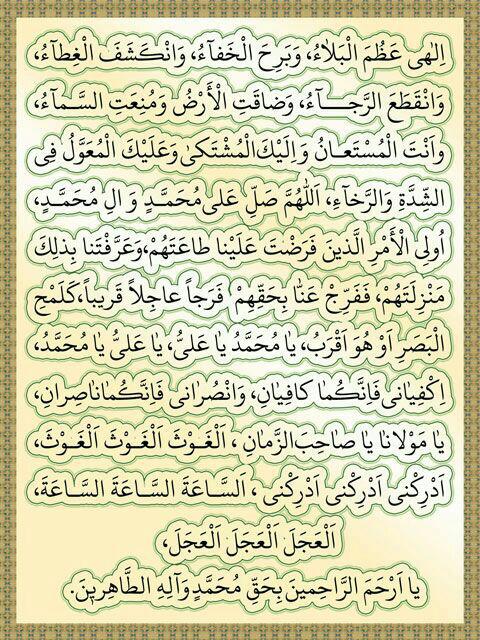 اِلٰهى عَظُمَ الْبَلاٰءُ، وَبَرِحَ الْخَفآءُ، وَانْكَشَفَ الْغِطآءُ،
وَانْقَطَعَ الرَّجــآءُ، وَضاقَتِ الْأَرْضُ وَمُنِعَتِ السَّمآءُ،
وَاَنْتَ الْمُسْتَعانُ وَاِلَيْكَ الْمُشْتَكىٰ وَعَلَيْكَ الْمُعَوَّلُ فِى
الشِّدَّةِ وَالرَّخآءِ، اَللّٰهُمَّ صَلِّ عَلىٰ مُحَمَّدٍ وَ الِ مُحَمَّدٍ،
اُولِى الْأَمْرِ الَّذينَ فَرَضْتَ عَلَيْنا طاعَتَهُمْ،وَعَرَّفْتَنا بِذلِكَ
مَنْزِلَتَهُمْ، فَفَرِّجْ عَنّا بِحَقِّهِمْ فَرَجاً عاجِلاً قَريباً،كَلَمْحِ
الْبَصَرِ اَوْ هُوَ اَقْرَبُ، يا مُحَمَّدُ يا عَلِىُّ، يا عَلِىُّ يا مُحَمَّدُ،
اِكْفِيانى فَاِنَّكُما كافِيانِ، وَانْصُرانى فَاِنَّكُما ناصِرانِ،
يا مَوْلانا يا صاحِبَ الزَّمانِ ، اَلْغَــوْثَ اَلْغَــوْثَ اَلْغَوْثَ،
اَدْرِكْنى اَدْرِكْنى اَدْرِكْنى ، اَلسّاعَةَ السّاعَةَ السّاعَةَ،
اَلْعَجَلَ اَلْعَجَلَ اَلْعَجَلَ،
يا اَرْحَمَ الرّاحِمينَ بِحَقِّ مُحَمَّدٍ وَآلِهِ الطّاهِرينَ.